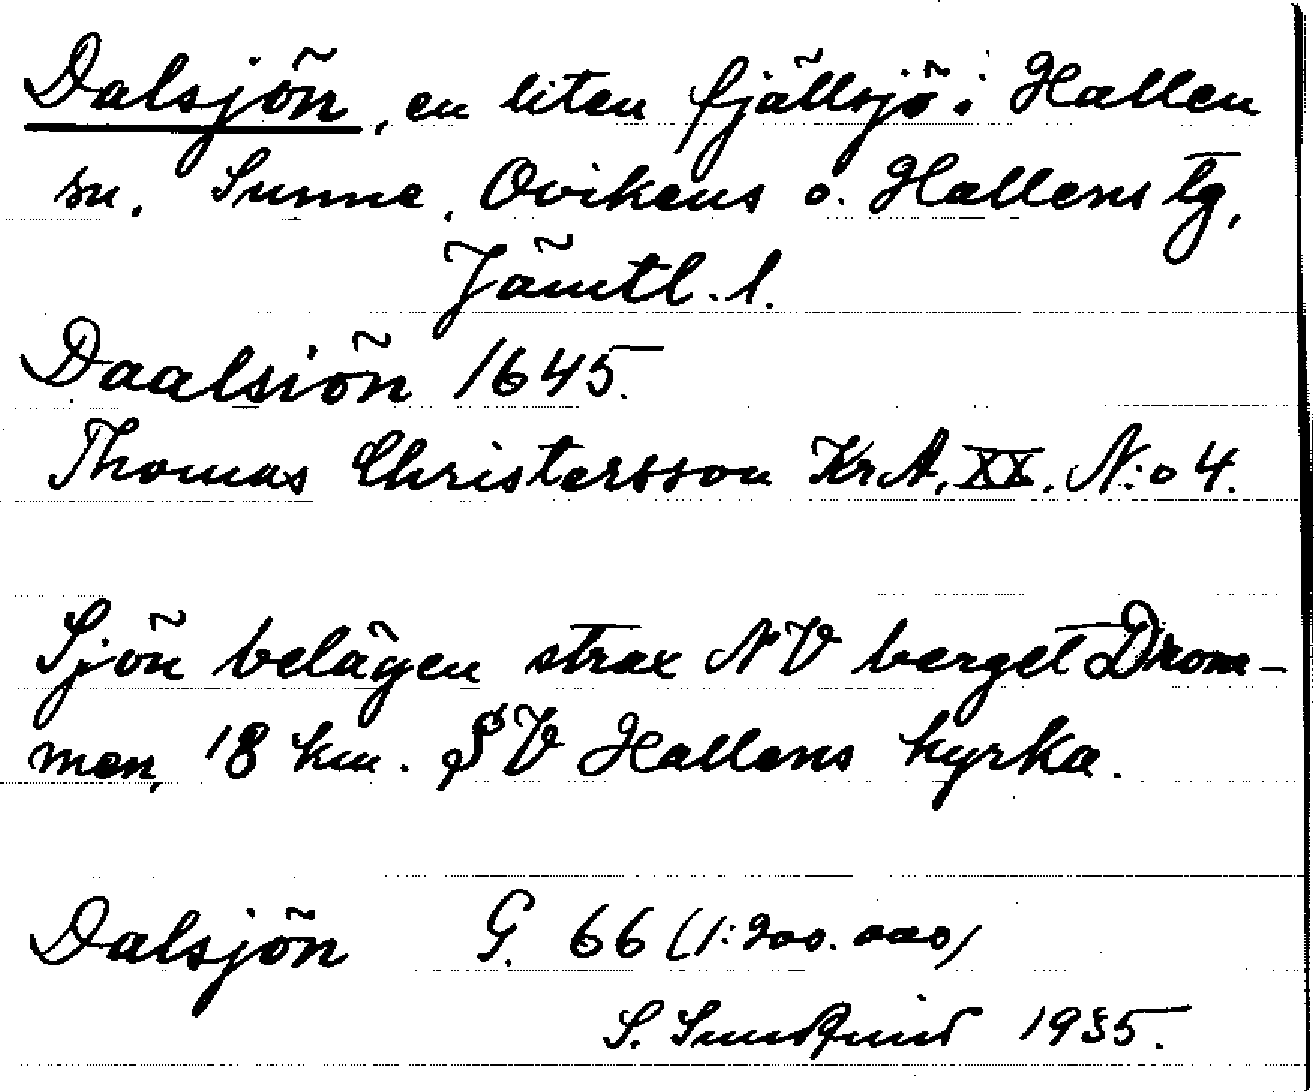 Dalsjön, en liten fjällsjö i Hallen
sn. Sunne, Ovikens o. Hallens tg,
Jämtl. l.
Daalsiön 1645.
Thomas Christersson KrA, XX. N:o 4.
Sjön belägen strax NV berget Drom-
men, 18 km. SV Hallens kyrka.
Dalsjön G. 66 (1:200.000)
S. Sundqvist 1935.